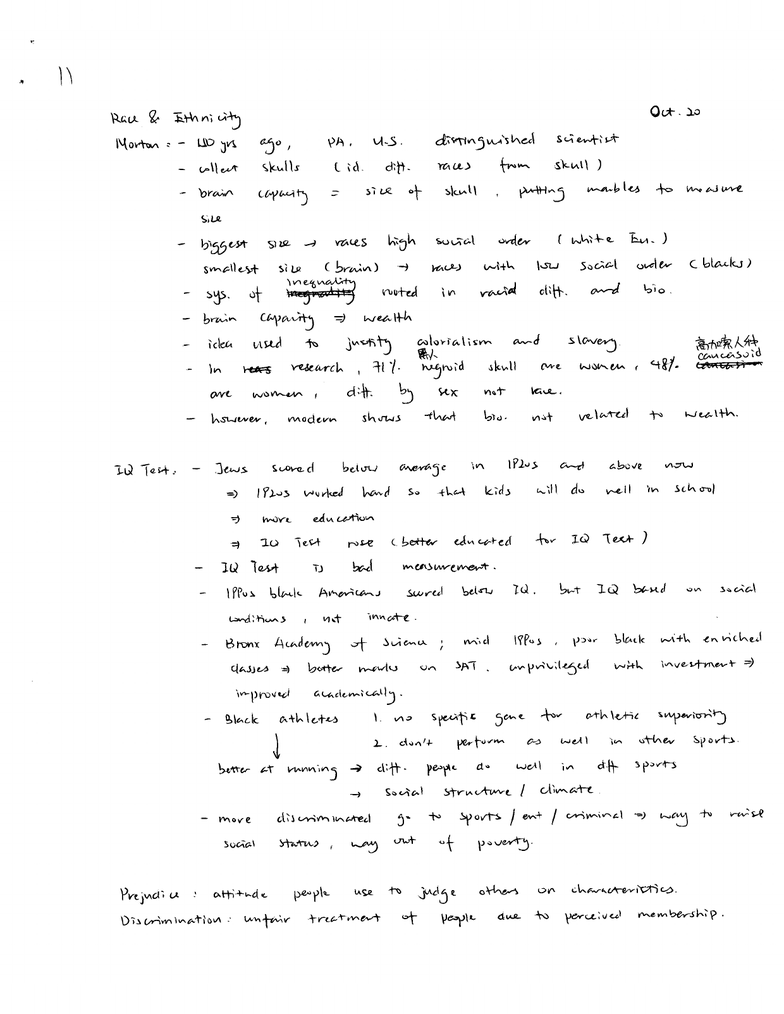 11
Race & Ethnicity Oct. 20
Morton: - yrs ago, PA, U.S. distinguished scientist
- collect skulls (id. diff. races from skull)
- brain capacity = size of skull, putting marbles to measure
size
- biggest size → races high social order (white Eu.)
smallest size (brain) → races with low social order (blacks)
- sys. of inequality rooted in racial diff. and bio.
- brain capacity ⇒ wealth
- idea used to justify colonialism and slavery.
- In research, 71% negroid 黑人 skull are women, 48% caucasoid 高加索人种
are women, diff. by sex not race.
- however, modern shows that bio. not related to wealth.
IQ Test: - Jews scored below average in 1920s and above now
⇒ 1920s worked hard so that kids will do well in school
⇒ more education
⇒ IQ Test rose (better educated for IQ Test)
- IQ Test is bad measurement.
- 1990s black Americans scored below IQ. but IQ based on social
conditions, not innate.
- Bronx Academy of Science; mid 1990s, poor black with enriched
classes ⇒ better marks on SAT. unprivileged with investment ⇒
improved academically.
- Black athletes 1. no specific gene for athletic superiority
↓ 2. don't perform as well in other sports.
better at running → diff. people do well in diff sports
→ social structure / climate.
- more discriminated go to sports / ent / criminal ⇒ way to raise
social status, way out of poverty.
Prejudice: attitude people use to judge others on characteristics.
Discrimination: unfair treatment of people due to perceived membership.